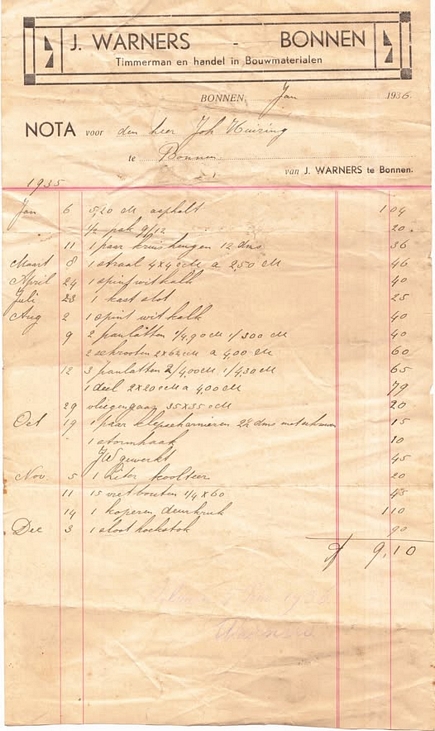 J. WARNERS - BONNEN
Timmerman en handel in Bouwmaterialen
BONNEN, Jan 1936.
NOTA voor den heer Joh Huizing
te Bonnen
van J. WARNERS te Bonnen.
1935
Jan 6 5,20 cM asphalt 1 04
1/2 pak 9/12 20
11 1 paar kruishengen 12 dms 56
Maart 8 1 straal 4x4 cM a 2,50 cM 46
April 24 1 spint witkalk 40
Juli 23 1 kast slot 25
Aug 2 1 spint witkalk 40
9 2 panlatten 1/4,90 cM 1/300 cM 40
2 schrooten 2x62 cM a 4,00 cM 60
12 3 panlatten 2/4,00 cM 1/4,30 cM 65
1 deel 2x20 cM a 4,00 79
29 vliegengaas 35x35 cM 20
Oct 19 1 paar klepscharnieren 22 dms 15
1 stormhaak 10
gewerkt 45
Nov 5 1 Liter koolteer 20
11 15 bouten 1/4 x 60 45
14 1 koperen deurkruk 1 10
Dec 3 1 90
f 9,10